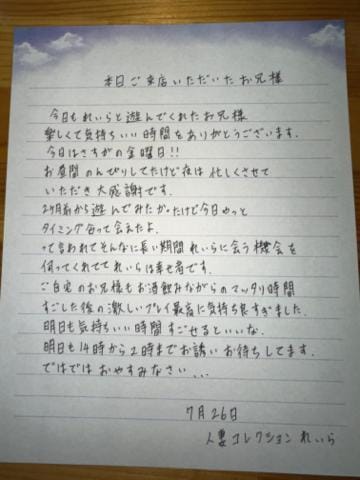 本日ご来店いただいたお兄様
今日もれいらと遊んでくれたお兄様
楽しくて気持ちいい時間をありがとうございます.
今日はさすがの金曜日!!
お昼間のんびりしてたけど夜は忙しくさせて
いただき大感謝です.
2ヶ月前から遊んでみたかったけど今日やっと
タイミング合って会えたよ.
って言われてそんなに長い期間れいらに会う機会を
伺ってくれててれいらは幸せ者です.
ご自宅のお兄様もお酒飲みながらのマッタリ時間
すごした後の激しいプレイ最高に気持ち良すぎました.
明日も気持ちいい時間すごせるといいな.
明日も14時から2時までお誘いお待ちしてます.
ではではおやすみなさい...
7月26日
人妻コレクション れいら